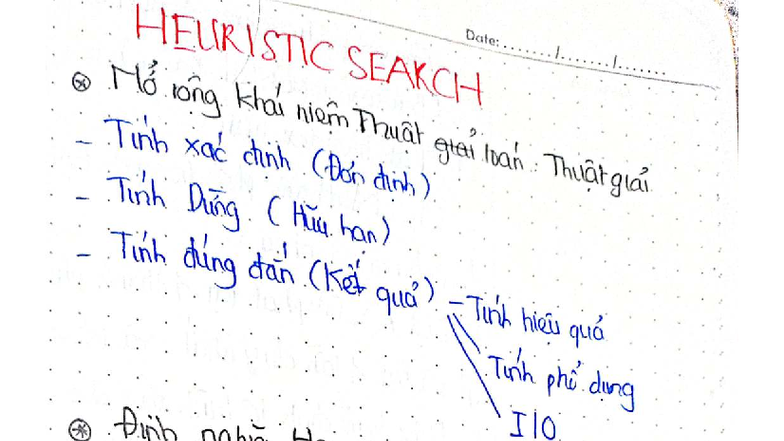 Date: ....../....../......
HEURISTIC SEARCH
⊛ Mở rộng khái niệm Thuật giải toán: Thuật giải
- Tính xác định (Đơn định)
- Tính Dừng (Hữu hạn)
- Tính đúng đắn (Kết quả) - Tính hiệu quả
Tính phổ dụng
I/O
⊛ Định nghĩa